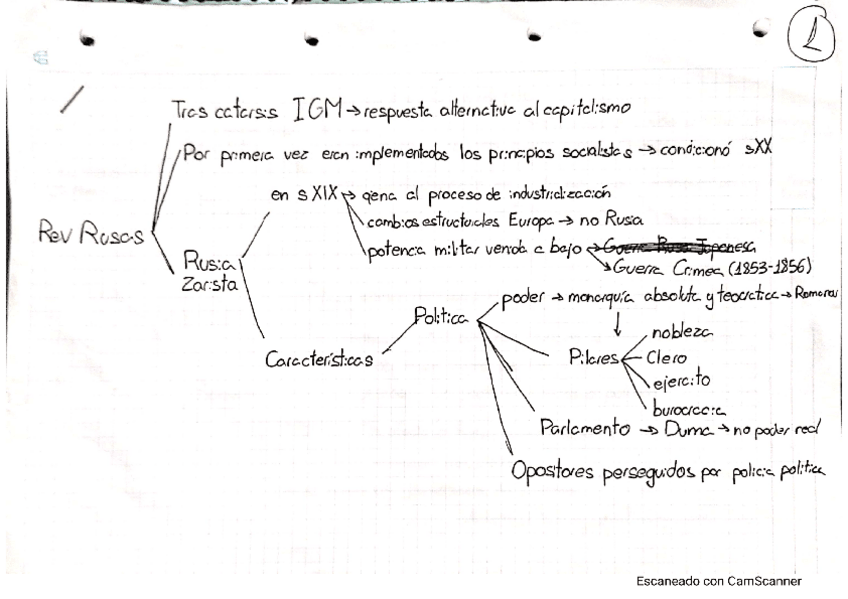 1
Tras catarsis IGM → respuesta alternativa al capitalismo
Por primera vez eran implementados los principios socialistas → condicionó sXX
en sXIX → ajena al proceso de industrialización
cambios estructurales Europa → no Rusia
Rev Rusas
potencia militar venida a bajo → Guerra Ruso Japonesa
Rusia Zarista
Guerra Crimea (1853-1856)
poder → monarquía absoluta y teocrática → Romanov
Política
nobleza
Características
Pilares
Clero
ejercito
burocracia
Parlamento → Duma → no poder real
Opositores perseguidos por policia política
Escaneado con CamScanner